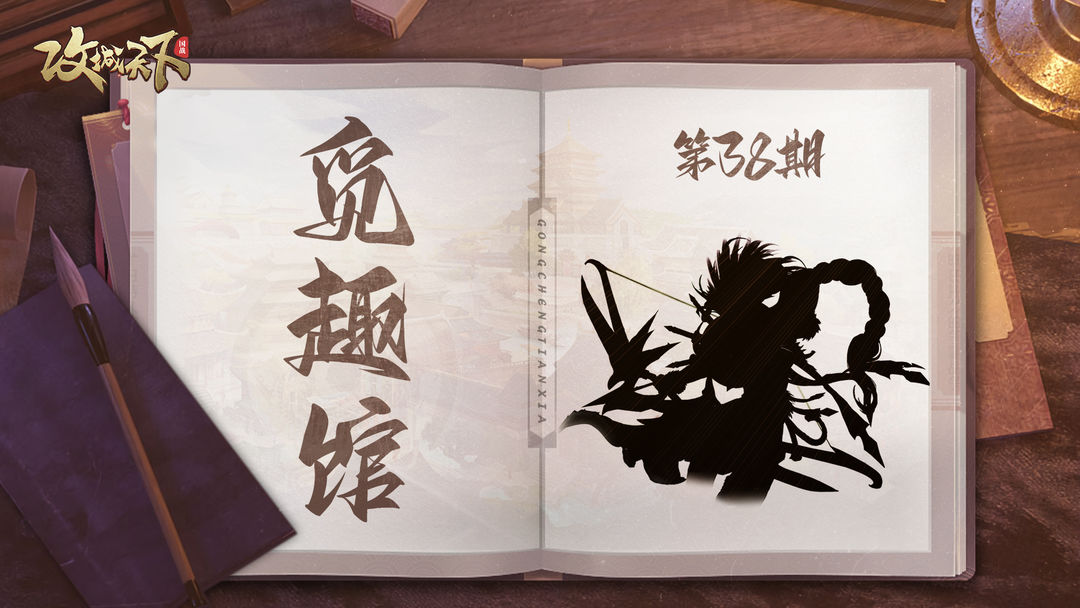 攻城天下
国战
觅趣馆
GONGCHENGTIANXIA
第38期